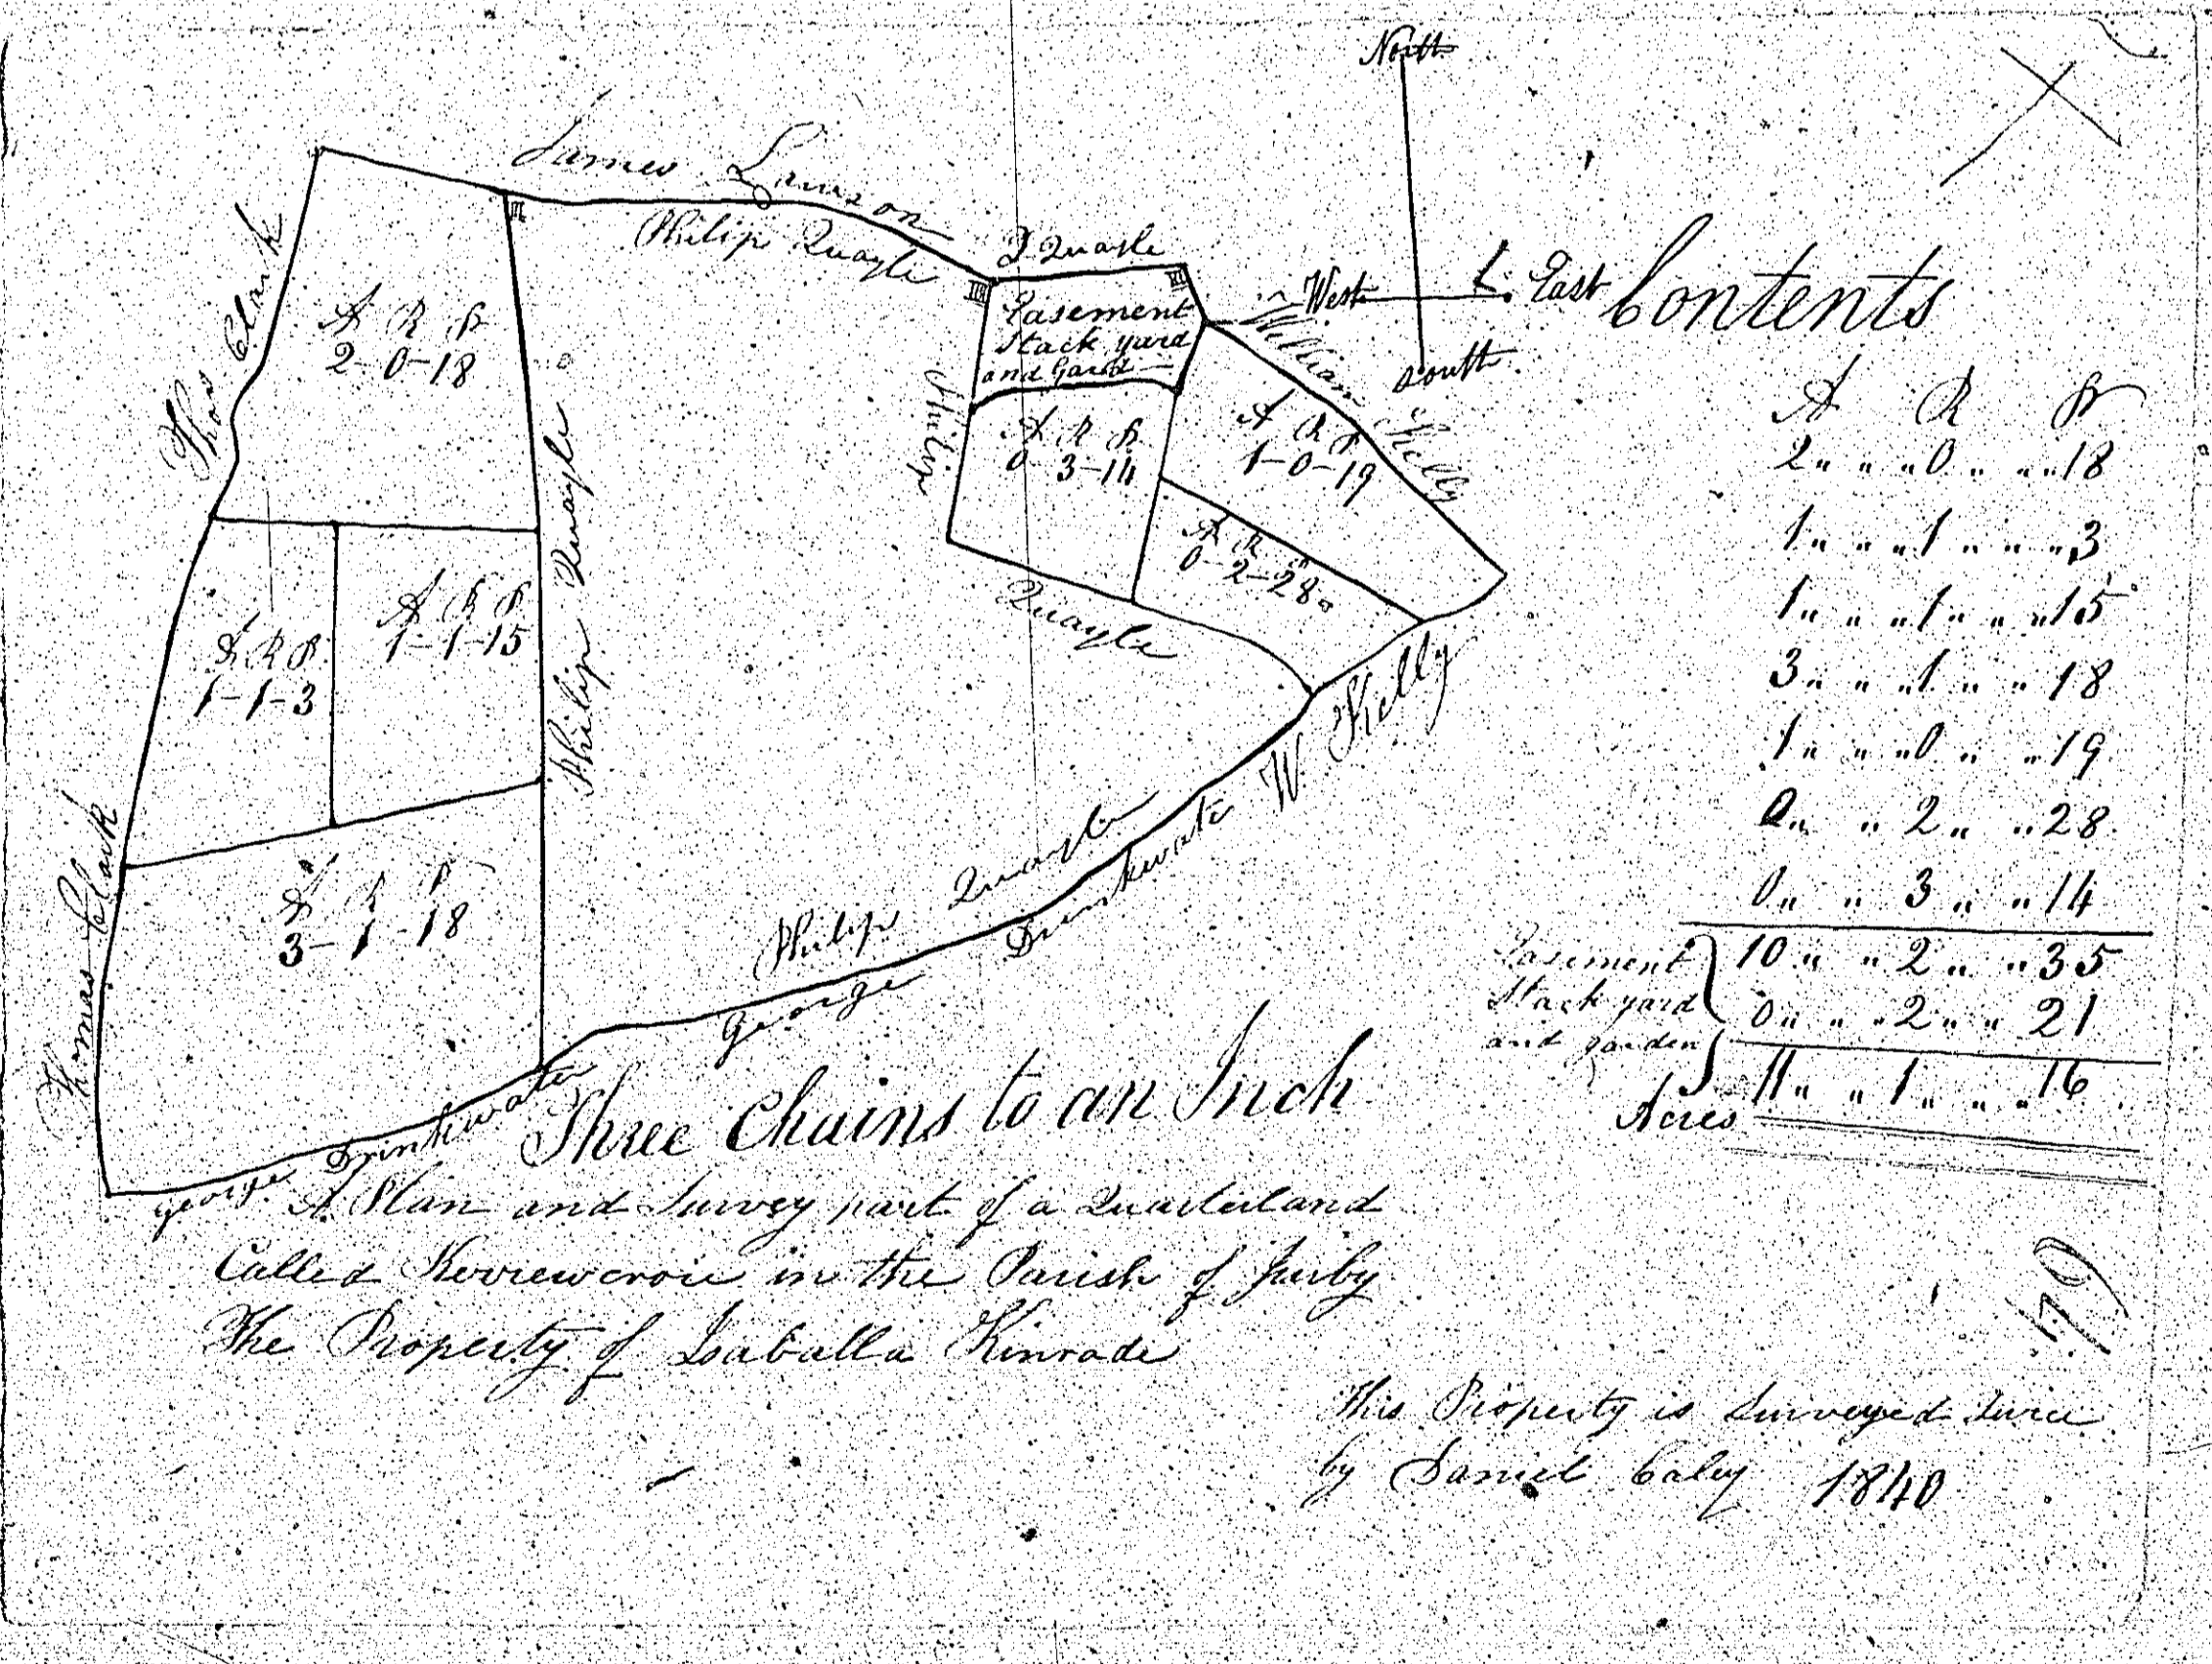 North
James Lawson
Philip Quayle
P Quayle
West
East
South
William Kelly
Thos Clark
A R P
2-0-18
Easement
Stack yard
and Gard
Philip
A R P
0 3-14
A R P
1-0-19
A R P
0-2-28
Quayle
Philip Quayle
A R P
1-1-3
A R P
1-1-15
W. Kelly
Thomas Clark
A R P
3-1-18
Philip Quayle
George Drinkwater
George Drinkwater
Contents
A R P
2 " " " 0 " " " 18
1 " " " 1 " " " 3
1 " " " 1 " " " 15
3 " " " 1 " " " 18
1 " " " 0 " " 19
0 " " 2 " " 28
0 " " 3 " " 14
10 " " 2 " " 35
Easement
Stack yard
and garden
0 " " " 2 " " 21
Acres 11 " " 1 " " " 16
Three Chains to an Inch
A Plan and Survey part of a Quarterland
Called Kerrowcroie in the Parish of Jurby
The Property of Isaballa Kinrade
This Property is Surveyed twice
by Daniel Caley 1840